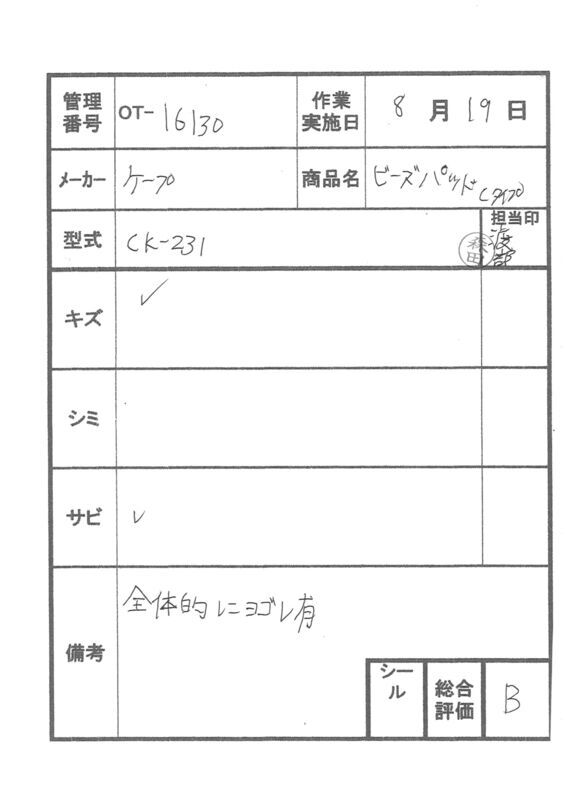 管理番号 OT-16130 作業実施日 8月19日
メーカー ケープ 商品名 ビーズパッド Cタイプ
型式 CK-231 担当印
森田 渡部
キズ ✓
シミ
サビ ✓
備考 全体的にヨゴレ有
シール 総合評価 B